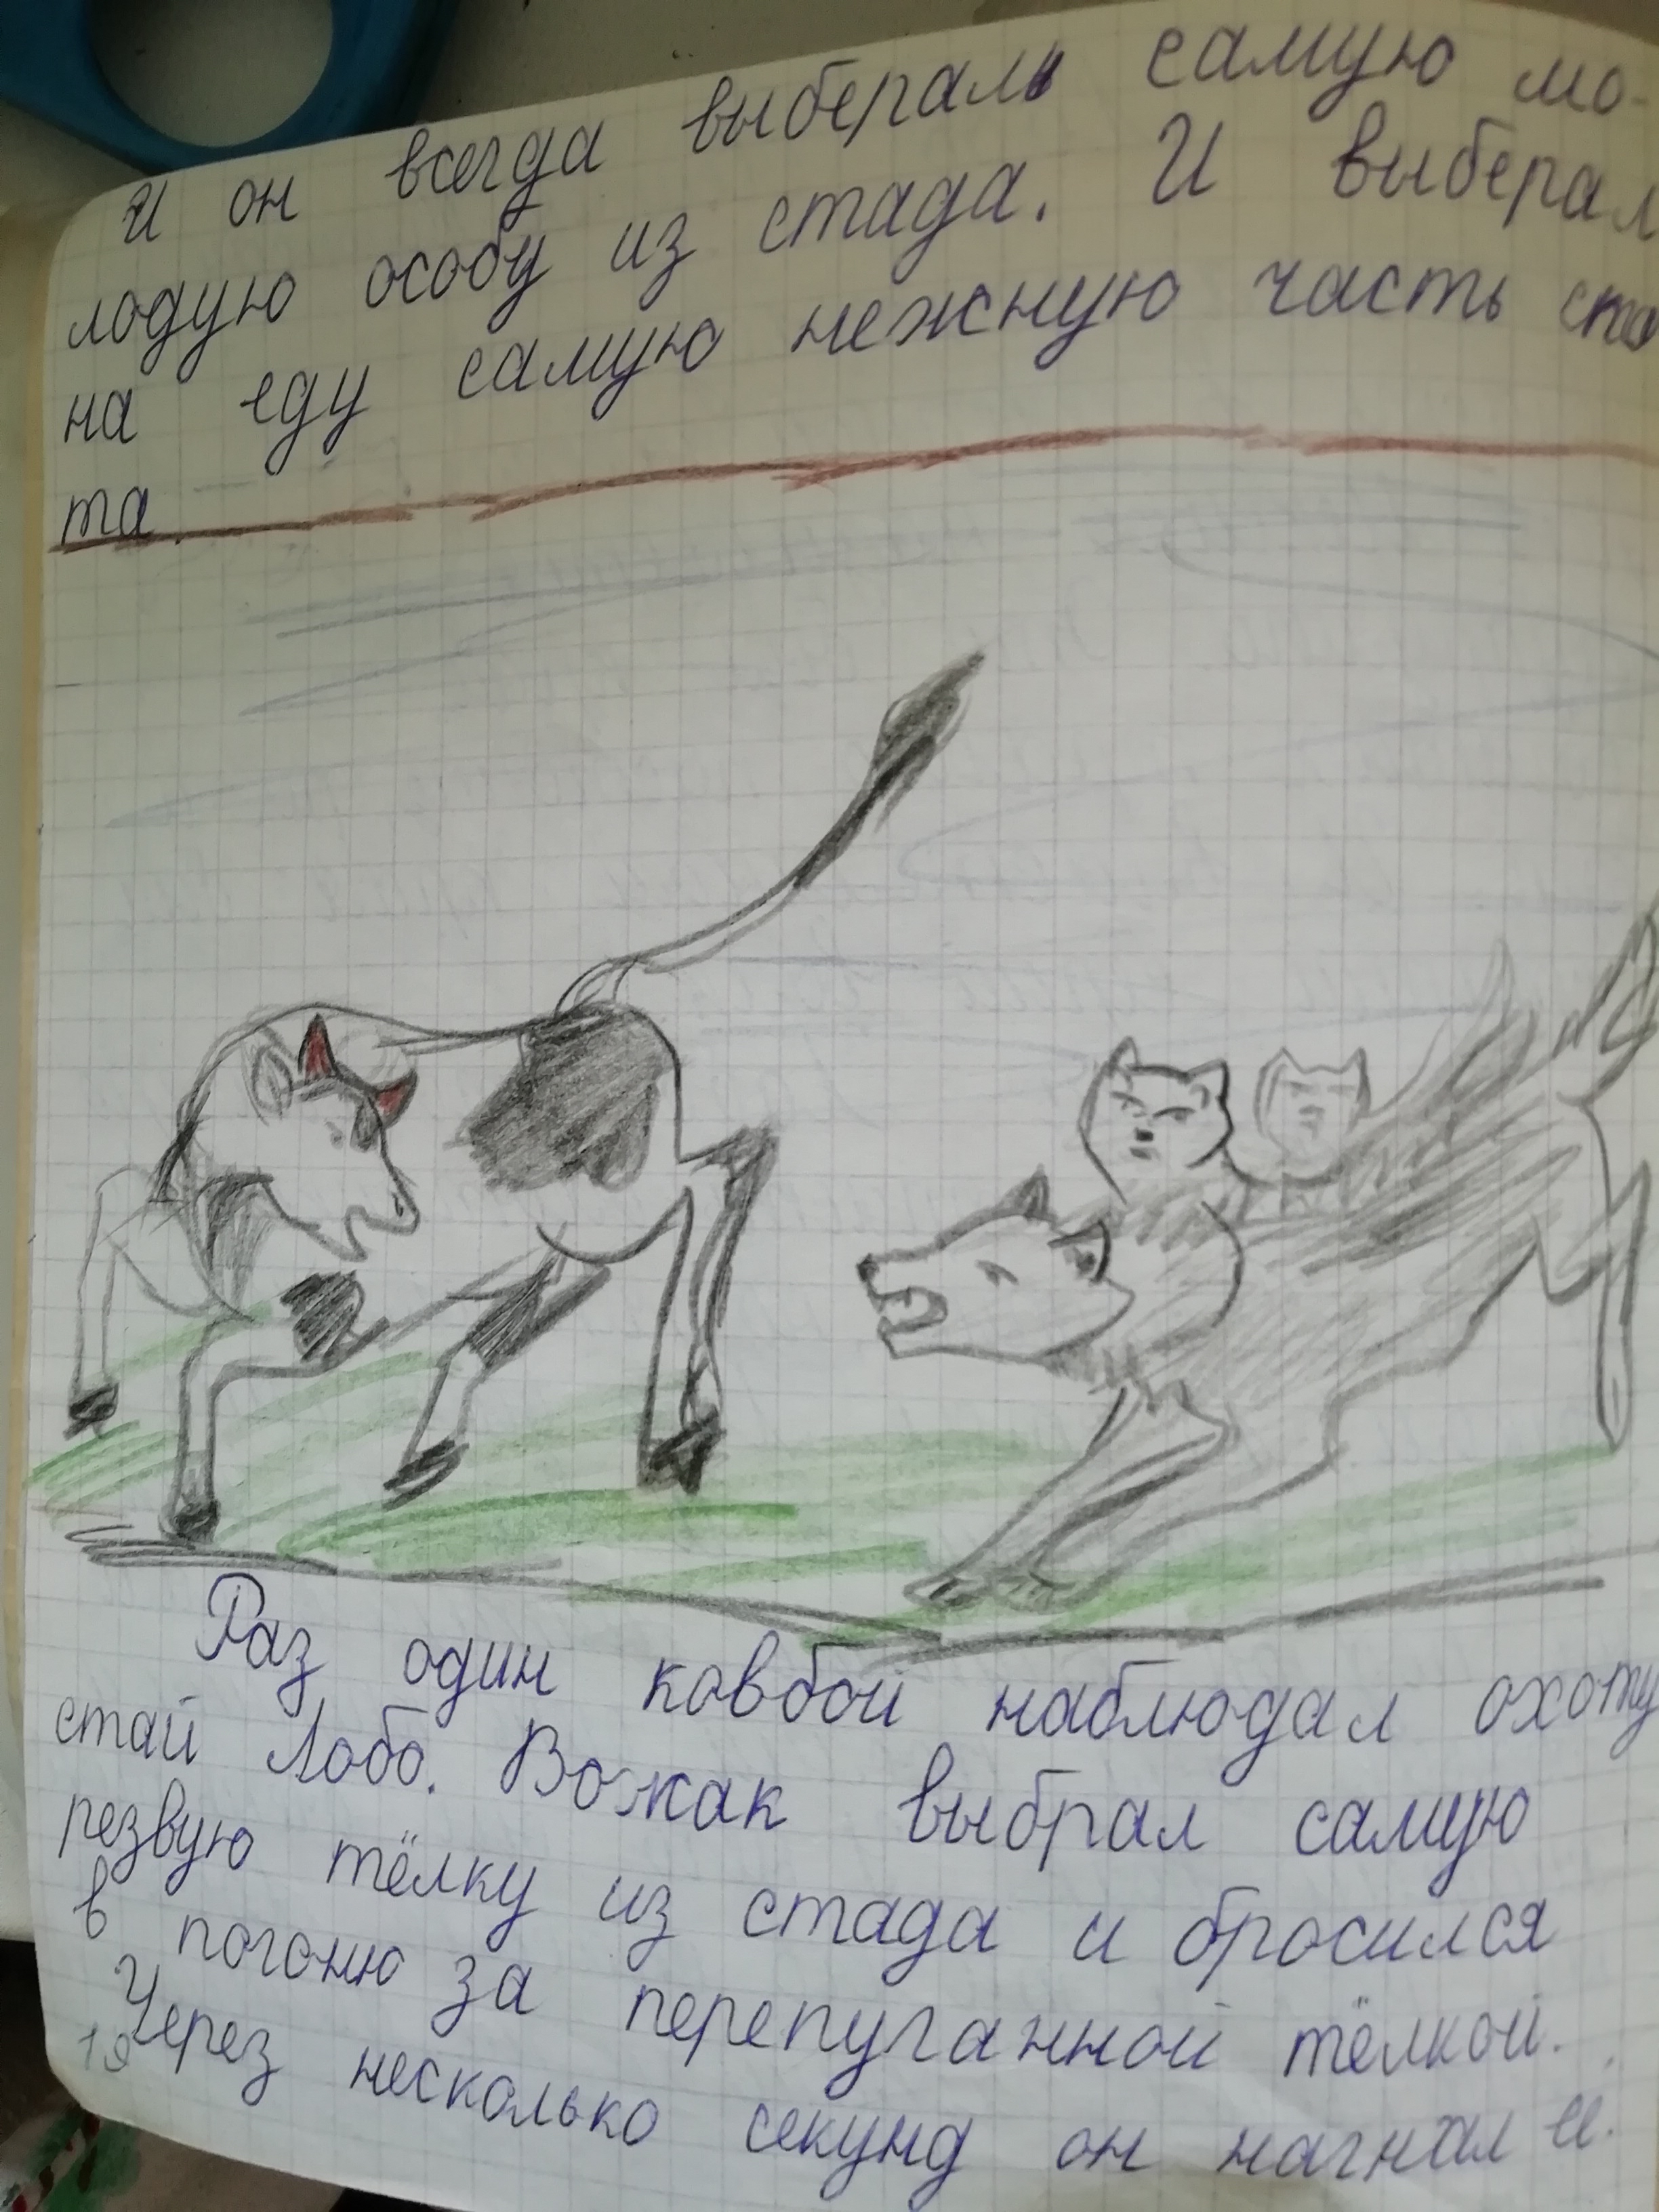 И он всегда выберал самую мо-
лодую особу из стада. И выберал
на еду самую нежную часть ста
та.
Раз один ковбой наблюдал охоту
стай Лобо. Вожак выбрал самую
резвую тёлку из стада и бросился
в погоню за перепуганной тёлкой.
Через несколько секунд он нагнал и.
19